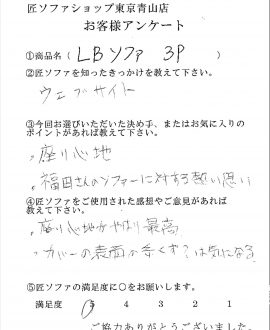 匠ソファショップ東京青山店
お客様アンケート
①商品名( LBソファ 3P )
②匠ソファを知ったきっかけを教えて下さい。
ウェブサイト
③今回お選びいただいた決め手、またはお気に入りの
ポイントがあれば教えて下さい。
・座り心地
・福田さんのソファーに対する熱い想い
④匠ソファをご使用された感想やご意見があれば
教えて下さい。
・座り心地がやはり最高
・カバーの表面が は気になる
⑤匠ソファの満足度に○をお願いします。
満足度 5 4 3 2 1
ご協力ありがとうございました。